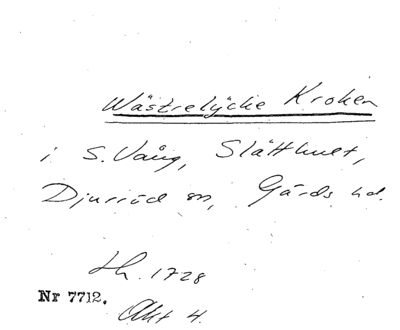 Wästrelycke Kroken
i S. Vång, Slätthult,
Djurröd sn, Gärds hd.
Lh. 1728
Nr 7712.
Akt 4.